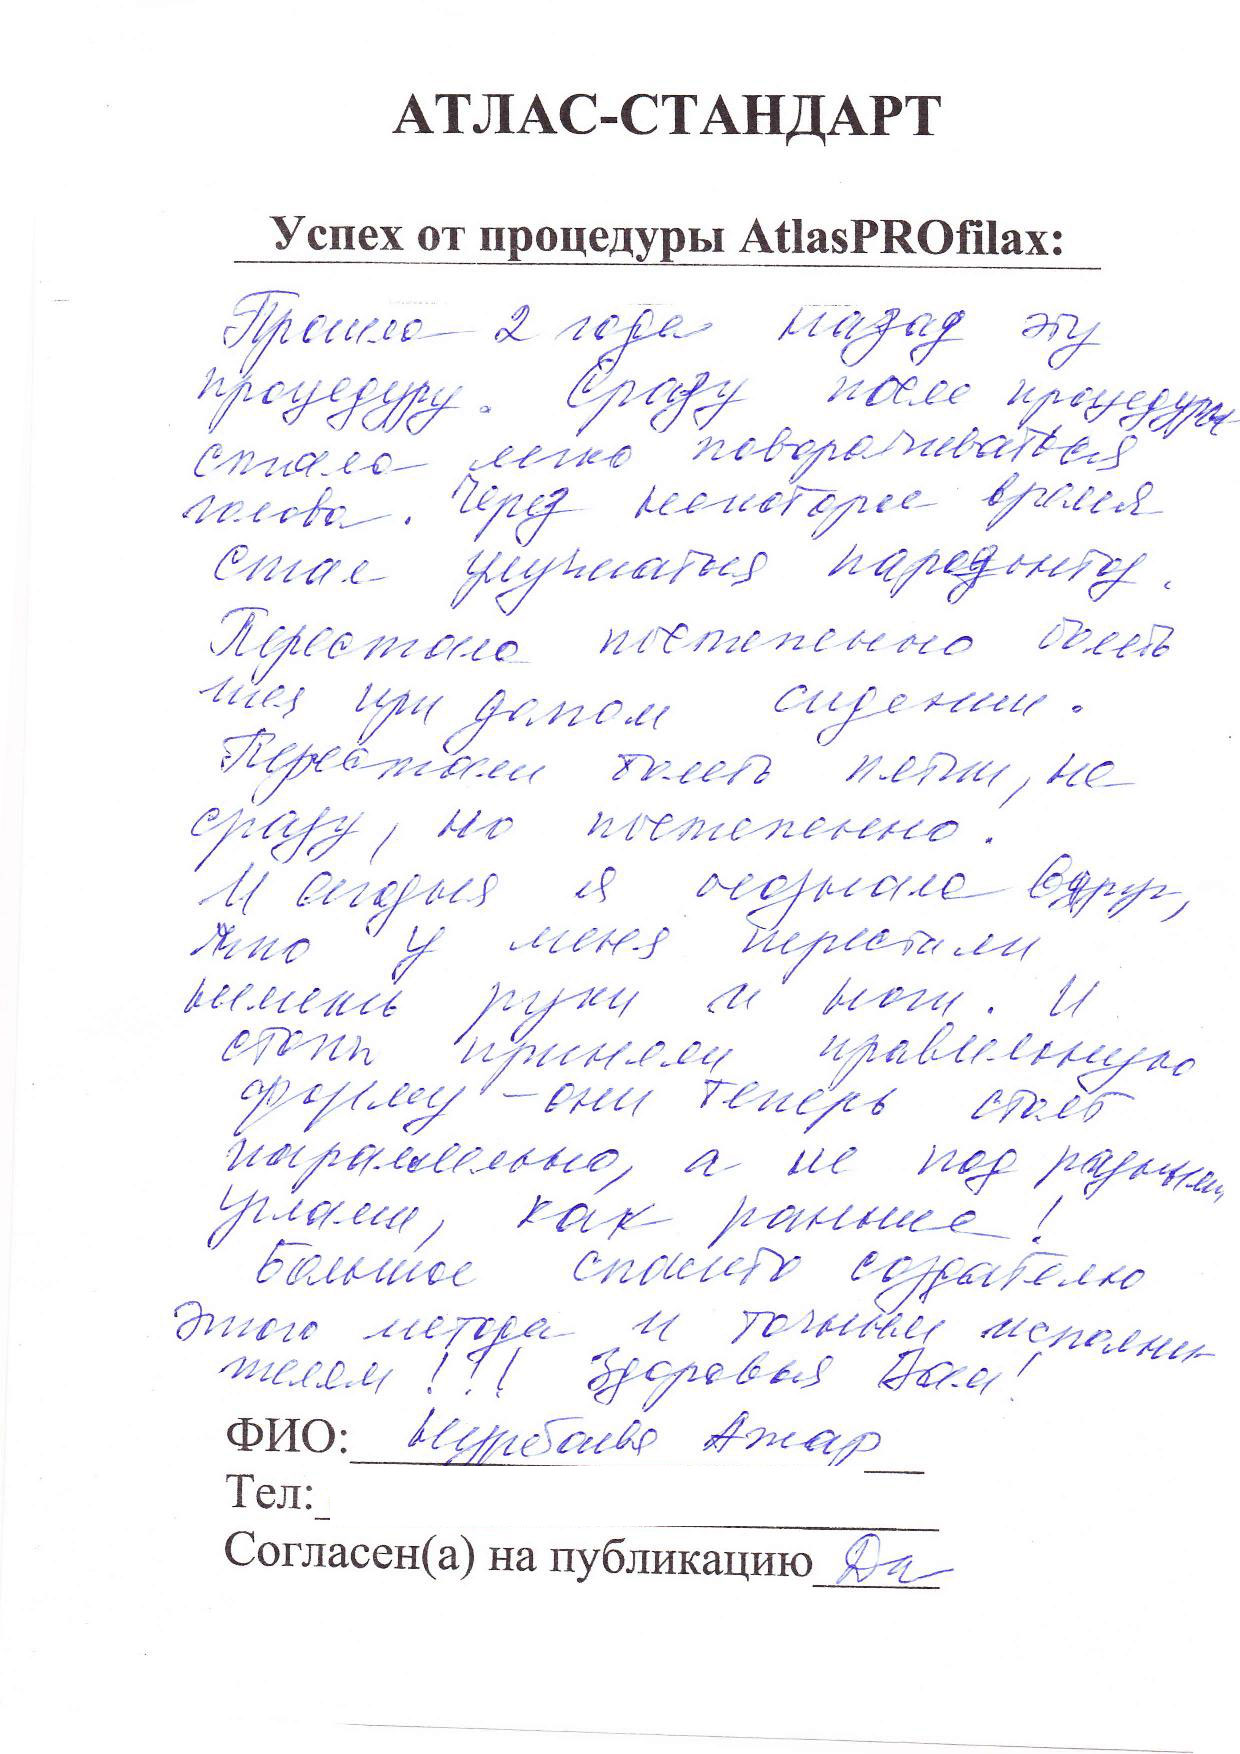 АТЛАС-СТАНДАРТ
Успех от процедуры AtlasPROfilax:
Прошла 2 года назад эту
процедуру. Сразу после процедуры
стала легко поворачиваться
голова. Через некоторое время
стал улучшаться пародонтоз.
Перестала постепенно болеть
шея при долгом сидении.
Перестали болеть пятки, не
сразу, но постепенно.
И сегодня я осознала вдруг,
что у меня перестали
неметь руки и ноги. И
стопы приняли правильную
форму - они теперь стоят
параллельно, а не под разными
углами, как раньше!
Большое спасибо создателю
этого метода и точным исполни
телям!!! Здоровья Вам!
ФИО: Нурбаева Ажар
Тел:
Согласен(а) на публикацию Да